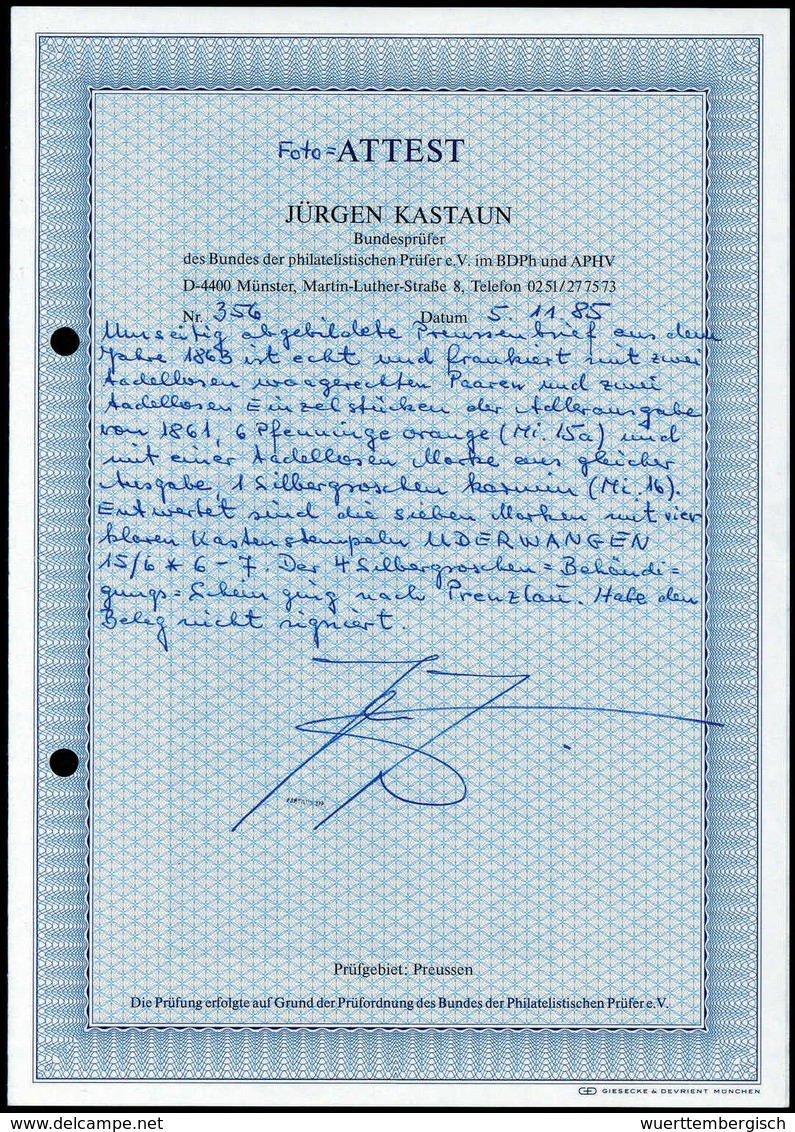 Foto=ATTEST
JÜRGEN KASTAUN
Bundesprüfer
des Bundes der philatelistischen Prüfer e.V. im BDPh und APHV
D-4400 Münster, Martin-Luther-Straße 8, Telefon 0251/277573
Nr. 356 Datum 5. 11. 85
Umseitig abgebildete Preussenbrief aus dem
Jahre 1863 ist echt und frankiert mit zwei
tadellosen waagerechten Paaren und zwei
tadellosen Einzelstücken der Adlerausgabe
von 1861, 6 Pfenninge orange (Mi. 15a) und
mit einer tadellosen Marke aus gleicher
Ausgabe, 1 Silbergroschen karmin (Mi. 16).
Entwertet sind die sieben Marken mit vier
klaren Kastenstempeln UDERWANGEN
15/6 * 6-7. Der 4 Silbergroschen=Behändi=
gungs=Schein ging nach Prenzlau. Habe den
Beleg nicht signiert.
Prüfgebiet: Preussen
Die Prüfung erfolgte auf Grund der Prüfordnung des Bundes der Philatelistischen Prüfer e.V.
GIESECKE & DEVRIENT MÜNCHEN
wuerttembergisch